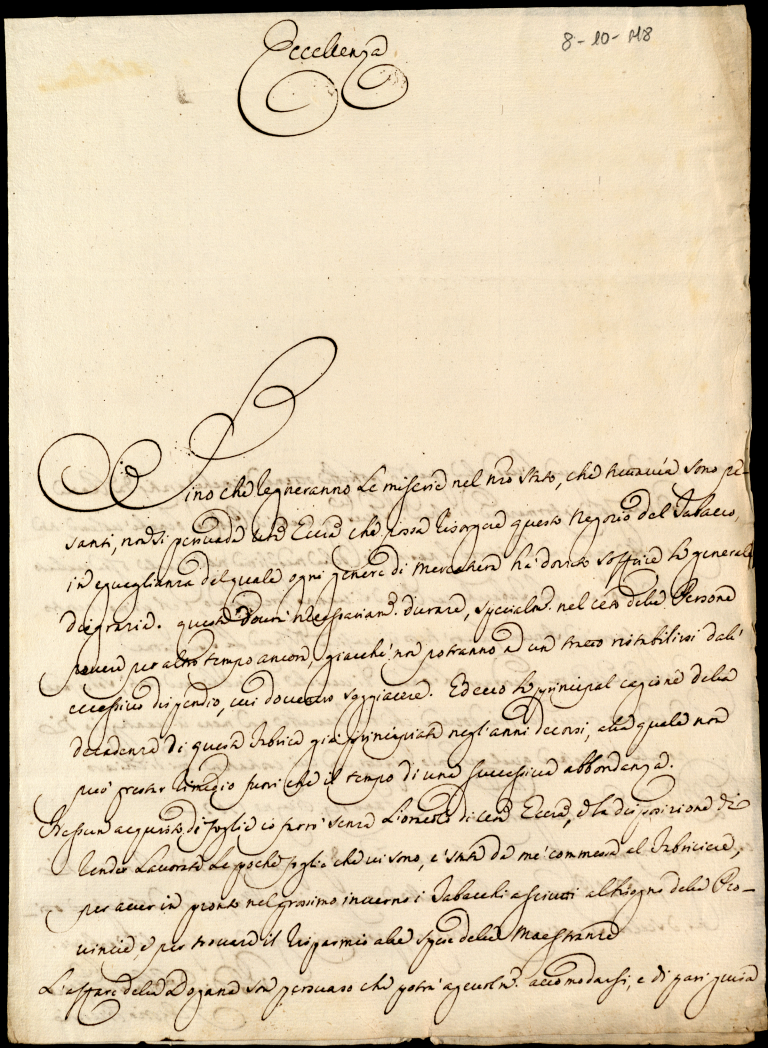 Eccellenza
8-10-
Fino che regneranno le miserie nel nro Stato, che tuttavia sono pe-
santi, non si persuada vra Eccza che possa risorgere questo Negozio del Tabacco,
in eguaglianza del quale ogni genere di Mercatura ha dovuto soffrire la generale
disgrazia. questa dovrà necessariamte durare, specialmte nel ceto delle Persone
povere per altro tempo ancora, giacchè non potranno a un tratto ristabilirsi dall'
eccessivo dispendio, cui dovettero soggiacere. Ed ecco la principal cagione della
decadenza di questa Fabrica già principiata negl'anni decorsi, alla quale non
può prestar rimedio fuori che il tempo di una successiva abbondanza.
Nessun acquisto di foglie io farò senza l'oracolo di vra Eccza, e la disposizione di
render lavorate le poche foglie che vi sono, è stata da me commessa al Fabriciere,
per aver in pronto nel prossimo inverno i Tabacchi asciutti al bisogno delle Pro-
vincie, e per trovare il risparmio alle spese delle Maestranze
L'affare della Dogana son persuaso che potrà agevolmte accomodarsi, e di pari guisa